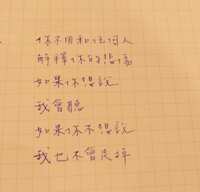 你不用和任何人
解釋你的想法
如果你想說
我會聽
如果你不想說
我也不會